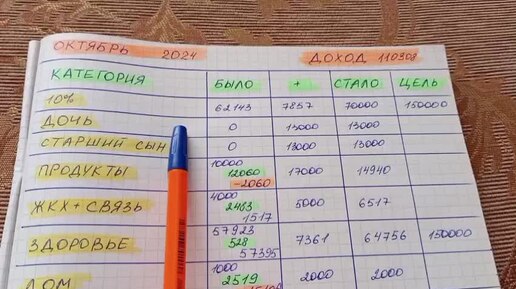 ОКТЯБРЬ 2024 ДОХОД 110308
КАТЕГОРИЯ БЫЛО + СТАЛО ЦЕЛЬ
10% 62143 7857 70000 150000
ДОЧЬ 0 13000 13000
СТАРШИЙ СЫН 0 13000 13000
10000
ПРОДУКТЫ 12060 17000 14940
-2060
4000
ЖКХ + СВЯЗЬ 2483 5000 6517
1517
57923
ЗДОРОВЬЕ 528 7361 64756 150000
57395
1000
ДОМ 2519 2000 2000